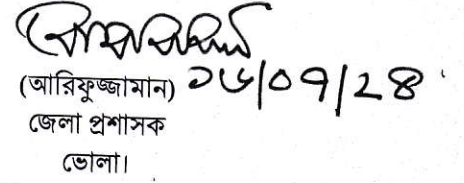 (আরিফুজ্জামান) ১৬/০৭/২৪
জেলা প্রশাসক
ভোলা।